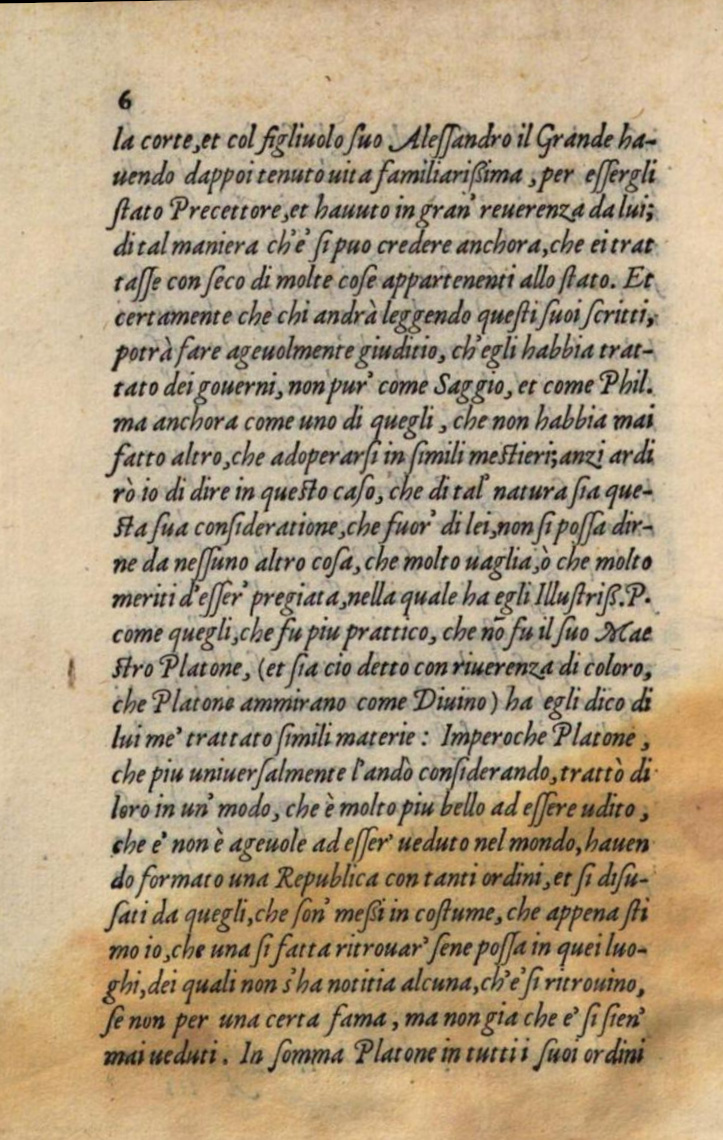 6
la corte, et col figliuolo ſuo Aleſſandro il Grande ha-
uendo dappoi tenuto uita familiarißima, per eſſergli
ſtato Precettore, et hauuto in gran' reuerenza da lui;
di tal maniera ch'e' ſi puo credere anchora, che ei trat
taſſe con ſeco di molte coſe appartenenti allo ſtato. Et
certamente che chi andrà leggendo queſti ſuoi ſcritti,
potrà fare ageuolmente giuditio, ch'egli habbia trat-
tato dei gouerni, non pur' come Saggio, et come Phil.
ma anchora come uno di quegli, che non habbia mai
fatto altro, che adoperarſi in ſimili meſtieri; anzi ardi
rò io di dire in queſto caſo, che di tal' natura ſia que-
ſta ſua conſideratione, che fuor' di lei, non ſi poſſa dir-
ne da neſſuno altro coſa, che molto uaglia, ò che molto
meriti d'eſſer' pregiata, nella quale ha egli Illuſtriß. P.
come quegli, che fu piu prattico, che nõ fu il ſuo Mae
ſtro Platone, (et ſia cio detto con riuerenza di coloro,
che Platone ammirano come Diuino) ha egli dico di
lui me' trattato ſimili materie: Imperoche Platone,
che piu uniuerſalmente l'andò conſiderando, trattò di
loro in un' modo, che è molto piu bello ad eſſere udito,
che e' non è ageuole ad eſſer' ueduto nel mondo, hauen
do formato una Republica con tanti ordini, et ſi diſu-
ſati da quegli, che ſon' meßi in coſtume, che appena ſti
mo io, che una ſi fatta ritrouar' ſene poſſa in quei luo-
ghi, dei quali non s'ha notitia alcuna, ch'e' ſi ritrouino,
ſe non per una certa fama, ma non gia che e' ſi ſien'
mai ueduti. In ſomma Platone in tutti i ſuoi ordini